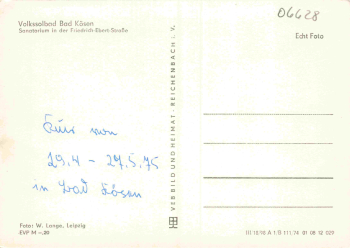 06628
Volkssolbad Bad Kösen
Sanatorium in der Friedrich-Ebert-Straße
Echt Foto
Kur von
29.4 - 27.5.75
in Bad Kösen
VEB BILD UND HEIMAT REICHENBACH i. V.
Foto: W. Lange, Leipzig
EVP M -,20
III 18 18 A 1/B 111/74 01 08 12 029